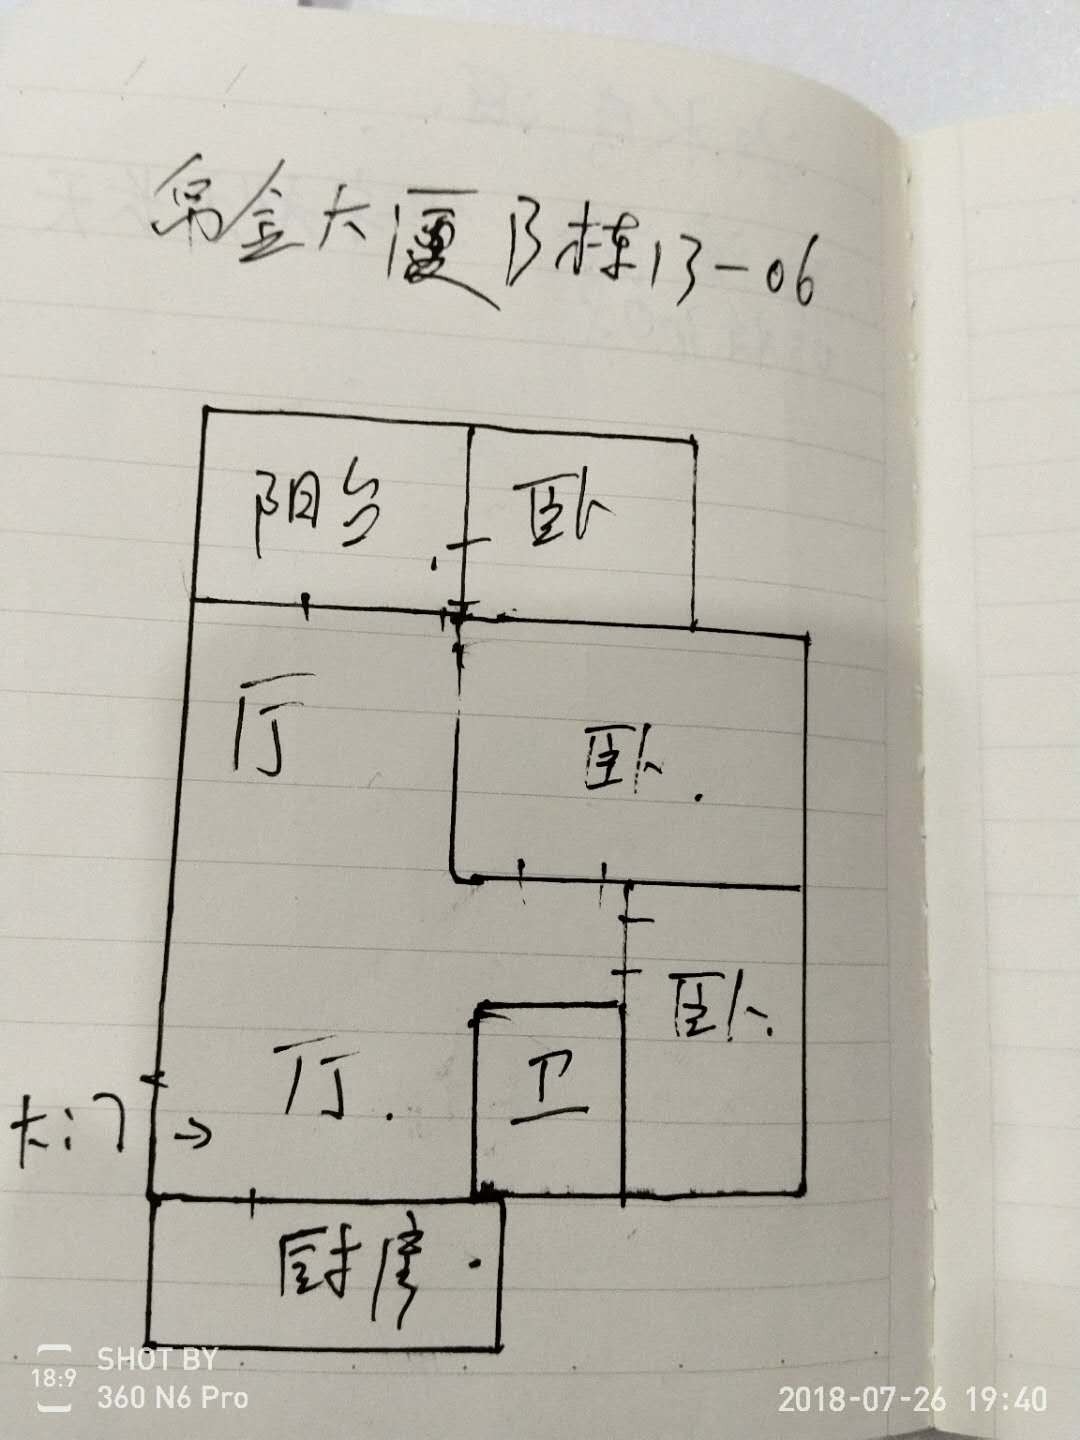 帛金大厦B栋13-06
阳台 卧
厅
卧
卧
厅 卫
大门 →
厨房
SHOT BY
18:9
360 N6 Pro
2018-07-26 19:40